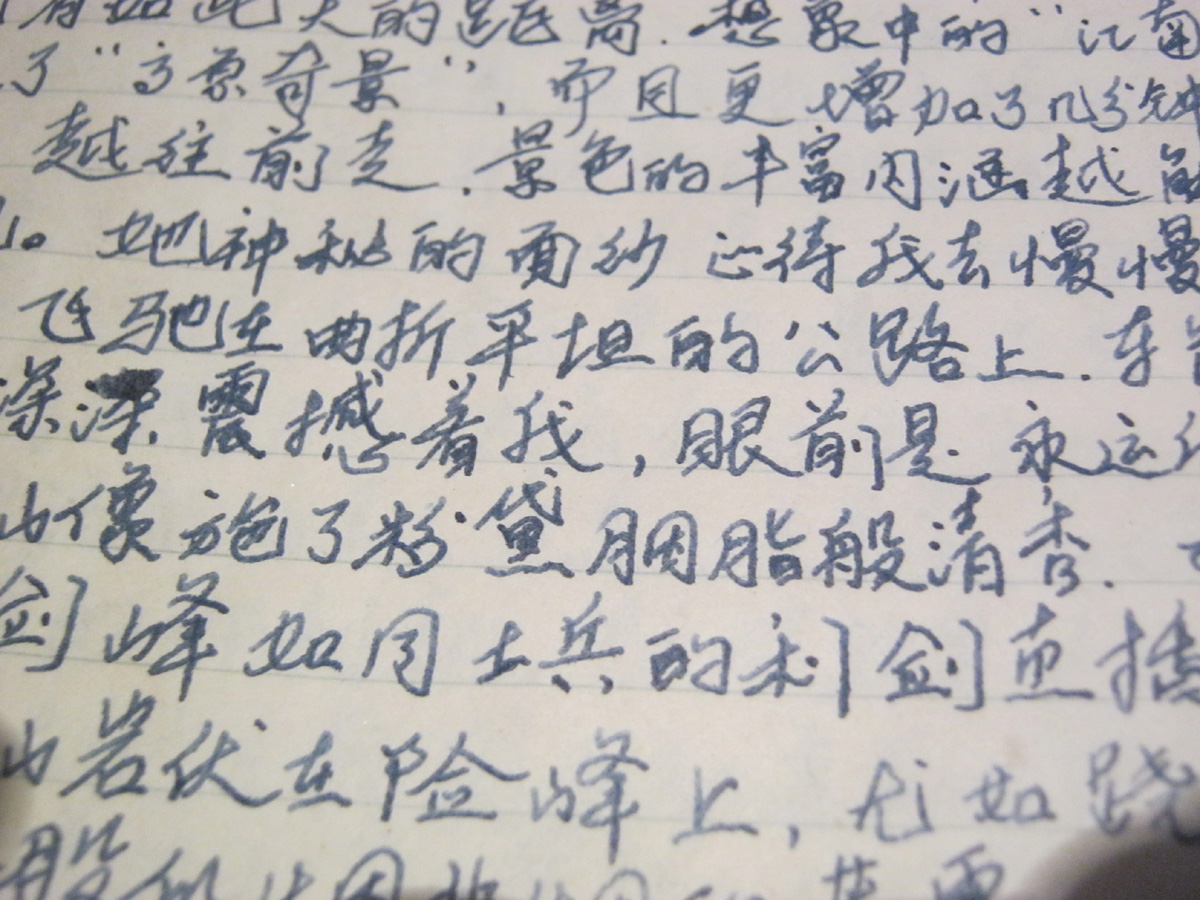 有如此大的距离.想象中的“江南
了“高原奇景”,而且更增加了几分神
越往前走.景色的丰富内涵越能
。她神秘的面纱正待我去慢慢
飞驰在曲折平坦的公路上.车
深深震撼着我,眼前是永远
山像施了粉黛胭脂般清香.
剑峰如同士兵的利剑直插
山岩伏在险峰上,尤如跷